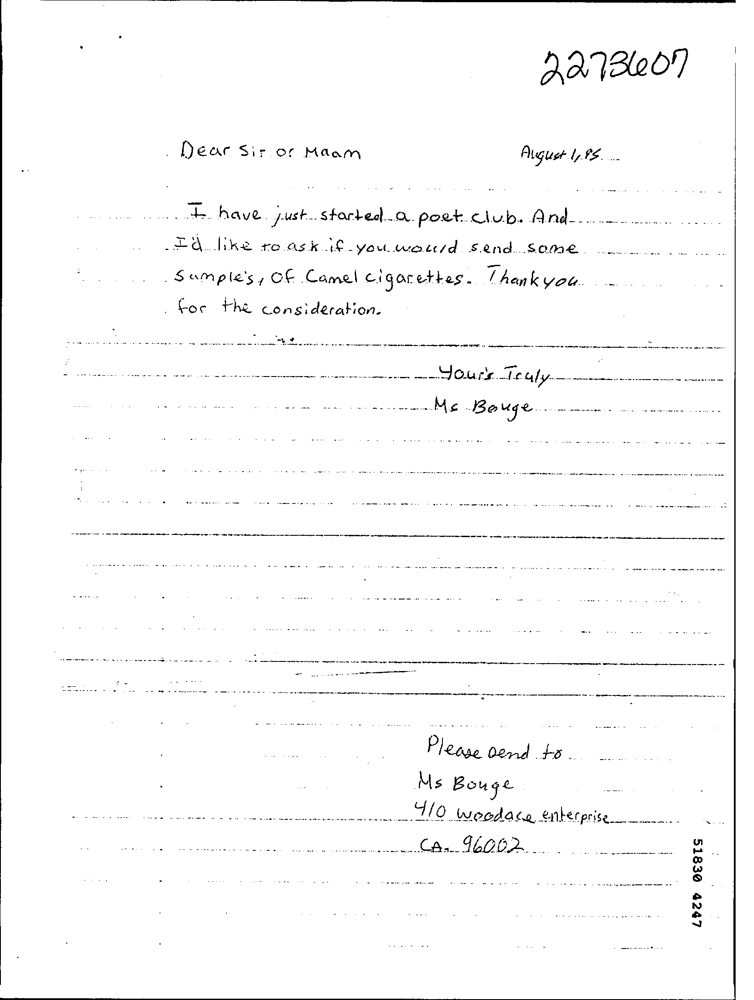 2273607
Dear Sir or Maam August 1, 95
I have just started a poet club. And
I'd like to ask if you would send some
Sample's, Of Camel cigarettes. Thank you
for the consideration.
Your's Truly
Ms Bouge
Please send to
Ms Bouge
410 woodace enterprise
CA. 96002
51830 4247